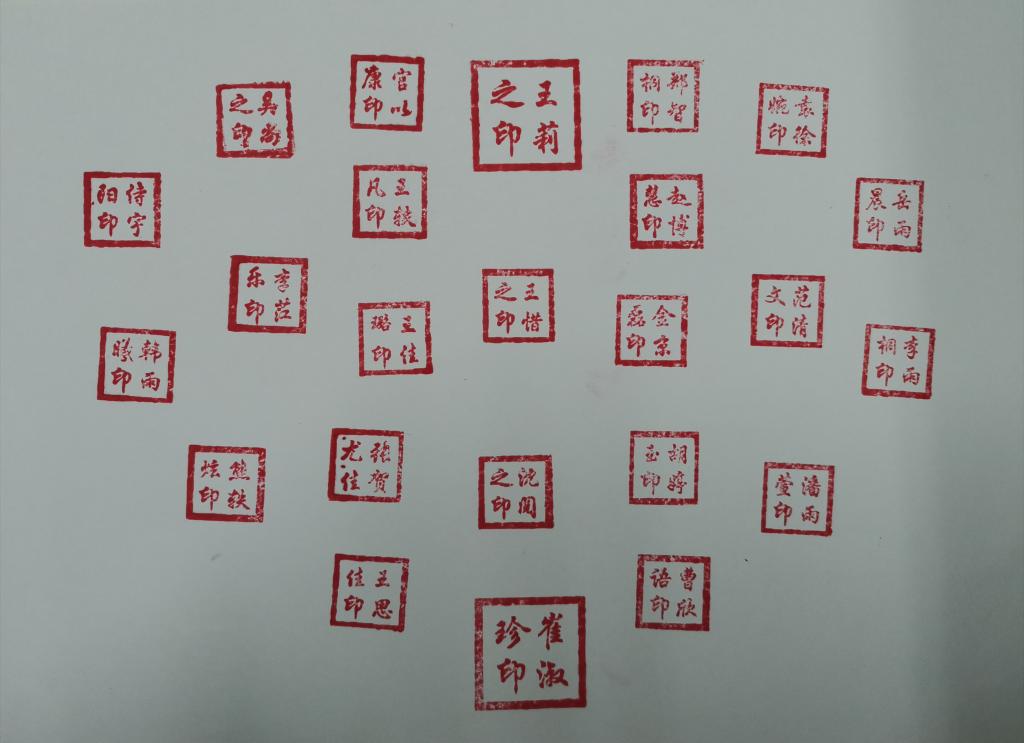 吴之印
官以康印
王莉之印
郑智桐印
袁徐婉印
侍宇阳印
王轶凡印
赵博慧印
岳雨晨印
李茳乐印
王佳璐印
王惜之印
金京磊印
范清文印
韩雨曦印
李雨桐印
熊轶炫印
张贺尤佳
沈之印
胡玉印
潘雨萱印
王思佳印
曹欣语印
崔淑珍印